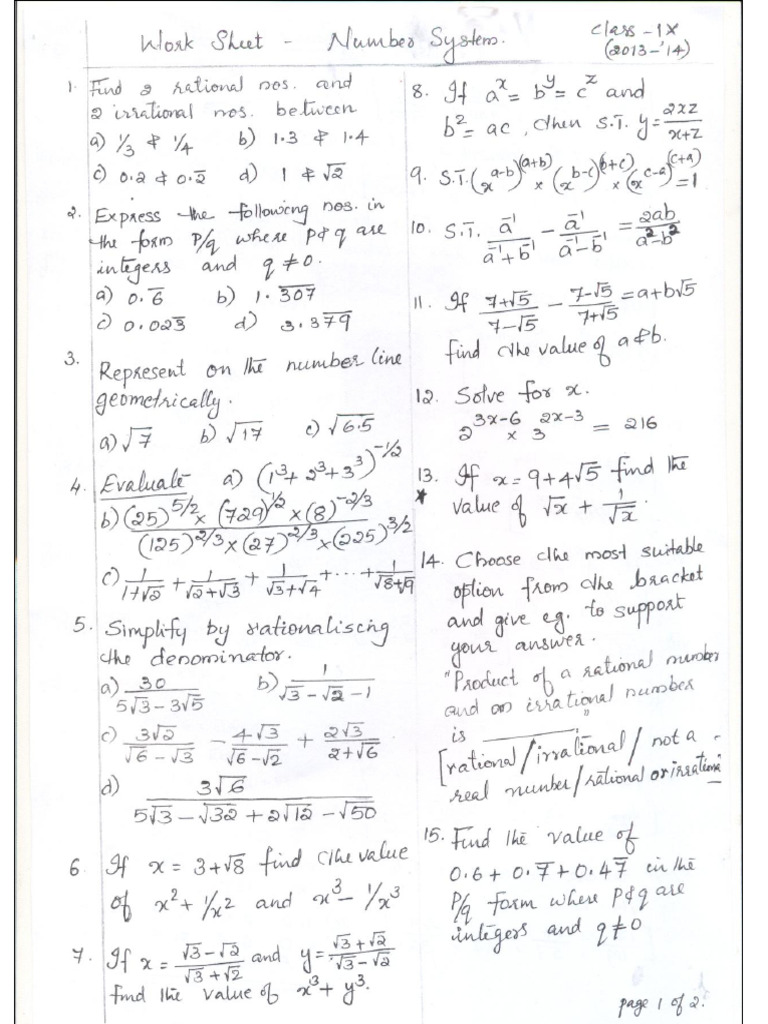 Work Sheet - Number System.
Class - IX
(2013-'14)
1. Find 2 rational nos. and
2 irrational nos. between
a) 1/3 & 1/4 b) 1.3 & 1.4
c) 0.2 & 0.2̅ d) 1 & √2
2. Express the following nos. in
the form P/q where p & q are
integers and q ≠ 0.
a) 0.6̅ b) 1.3̅0̅7̅
c) 0.023̅ d) 3.37̅9̅
3. Represent on the number line
geometrically.
a) √7 b) √17 c) √6.5
4. Evaluate a) (1³ + 2³ + 3³)^(-1/2)
b) ((25)^(5/2) × (729)^(1/2) × (8)^(-2/3)) / ((125)^(2/3) × (27)^(2/3) × (225)^(3/2))
c) 1/(1+√2) + 1/(√2+√3) + 1/(√3+√4) + ... + 1/(√8+√9)
5. Simplify by rationalising
the denominator.
a) 30/(5√3 - 3√5) b) 1/(√3 - √2 - 1)
c) 3√2/(√6 - √3) - 4√3/(√6 - √2) + 2√3/(2 + √6)
d) 3√6/(5√3 - √32 + 2√12 - √50)
6. If x = 3 + √8 find the value
of x² + 1/x² and x³ - 1/x³
7. If x = (√3 - √2)/(√3 + √2) and y = (√3 + √2)/(√3 - √2)
find the value of x³ + y³.
8. If a^x = b^y = c^z and
b² = ac, then S.T. y = 2xz/(x+z)
9. S.T. (x^(a-b))^(a+b) × (x^(b-c))^(b+c) × (x^(c-a))^(c+a) = 1
10. S.T. a⁻¹/(a⁻¹ + b⁻¹) - a⁻¹/(a⁻¹ - b⁻¹) = 2ab/(a² - b²)
11. If (7+√5)/(7-√5) - (7-√5)/(7+√5) = a + b√5
find the value of a & b.
12. Solve for x.
2^(3x-6) × 3^(2x-3) = 216
13. If x = 9 + 4√5 find the
* value of √x + 1/√x.
14. Choose the most suitable
option from the bracket
and give eg. to support
your answer.
"Product of a rational number
and an irrational number
is ________"
[rational / irrational / not a
real number / rational or irrational
15. Find the value of
0.6 + 0.7̅ + 0.47̅ in the
P/q form where p & q are
integers and q ≠ 0
page 1 of 2.